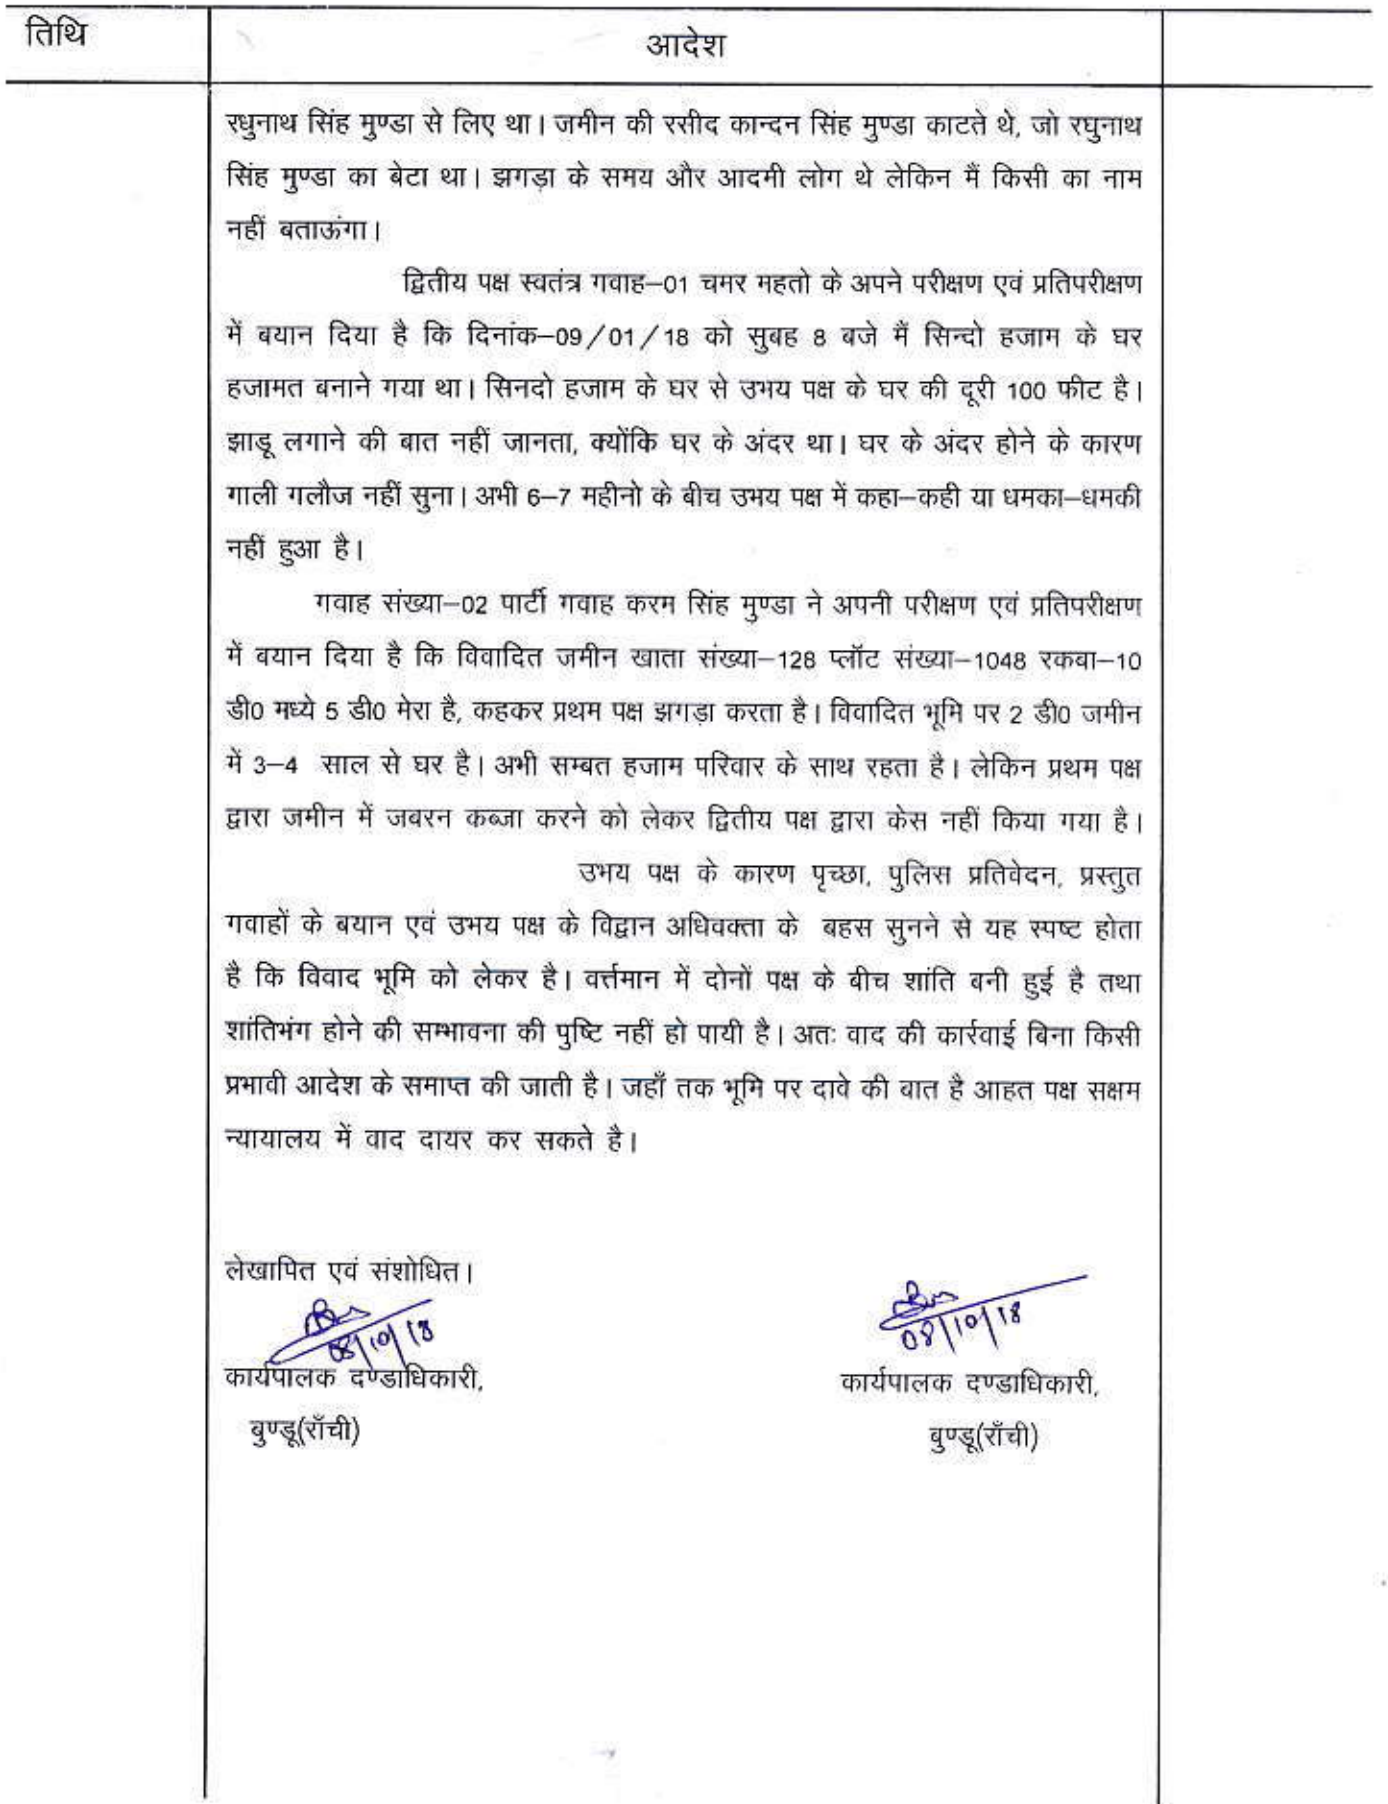 तिथि
आदेश
रघुनाथ सिंह मुण्डा से लिए था। जमीन की रसीद कान्दन सिंह मुण्डा काटते थे, जो रघुनाथ
सिंह मुण्डा का बेटा था। झगड़ा के समय और आदमी लोग थे लेकिन मैं किसी का नाम
नहीं बताऊंगा।
द्वितीय पक्ष स्वतंत्र गवाह–01 चमर महतो के अपने परीक्षण एवं प्रतिपरीक्षण
में बयान दिया है कि दिनांक–09/01/18 को सुबह 8 बजे मैं सिन्दो हजाम के घर
हजामत बनाने गया था। सिनदो हजाम के घर से उभय पक्ष के घर की दूरी 100 फीट है।
झाडू लगाने की बात नहीं जानता, क्योंकि घर के अंदर था। घर के अंदर होने के कारण
गाली गलौज नहीं सुना। अभी 6–7 महीनो के बीच उभय पक्ष में कहा–कही या धमका–धमकी
नहीं हुआ है।
गवाह संख्या–02 पार्टी गवाह करम सिंह मुण्डा ने अपनी परीक्षण एवं प्रतिपरीक्षण
में बयान दिया है कि विवादित जमीन खाता संख्या–128 प्लॉट संख्या–1048 रकवा–10
डी0 मध्ये 5 डी0 मेरा है, कहकर प्रथम पक्ष झगड़ा करता है। विवादित भूमि पर 2 डी0 जमीन
में 3–4 साल से घर है। अभी सम्बत हजाम परिवार के साथ रहता है। लेकिन प्रथम पक्ष
द्वारा जमीन में जबरन कब्जा करने को लेकर द्वितीय पक्ष द्वारा केस नहीं किया गया है।
उभय पक्ष के कारण पृच्छा, पुलिस प्रतिवेदन, प्रस्तुत
गवाहों के बयान एवं उभय पक्ष के विद्वान अधिवक्ता के बहस सुनने से यह स्पष्ट होता
है कि विवाद भूमि को लेकर है। वर्त्तमान में दोनों पक्ष के बीच शांति बनी हुई है तथा
शांतिभंग होने की सम्भावना की पुष्टि नहीं हो पायी है। अतः वाद की कार्रवाई बिना किसी
प्रभावी आदेश के समाप्त की जाती है। जहाँ तक भूमि पर दावे की बात है आहत पक्ष सक्षम
न्यायालय में वाद दायर कर सकते है।
लेखापित एवं संशोधित।
08/10/18
08/10/18
कार्यपालक दण्डाधिकारी,
कार्यपालक दण्डाधिकारी,
बुण्डू(राँची)
बुण्डू(राँची)